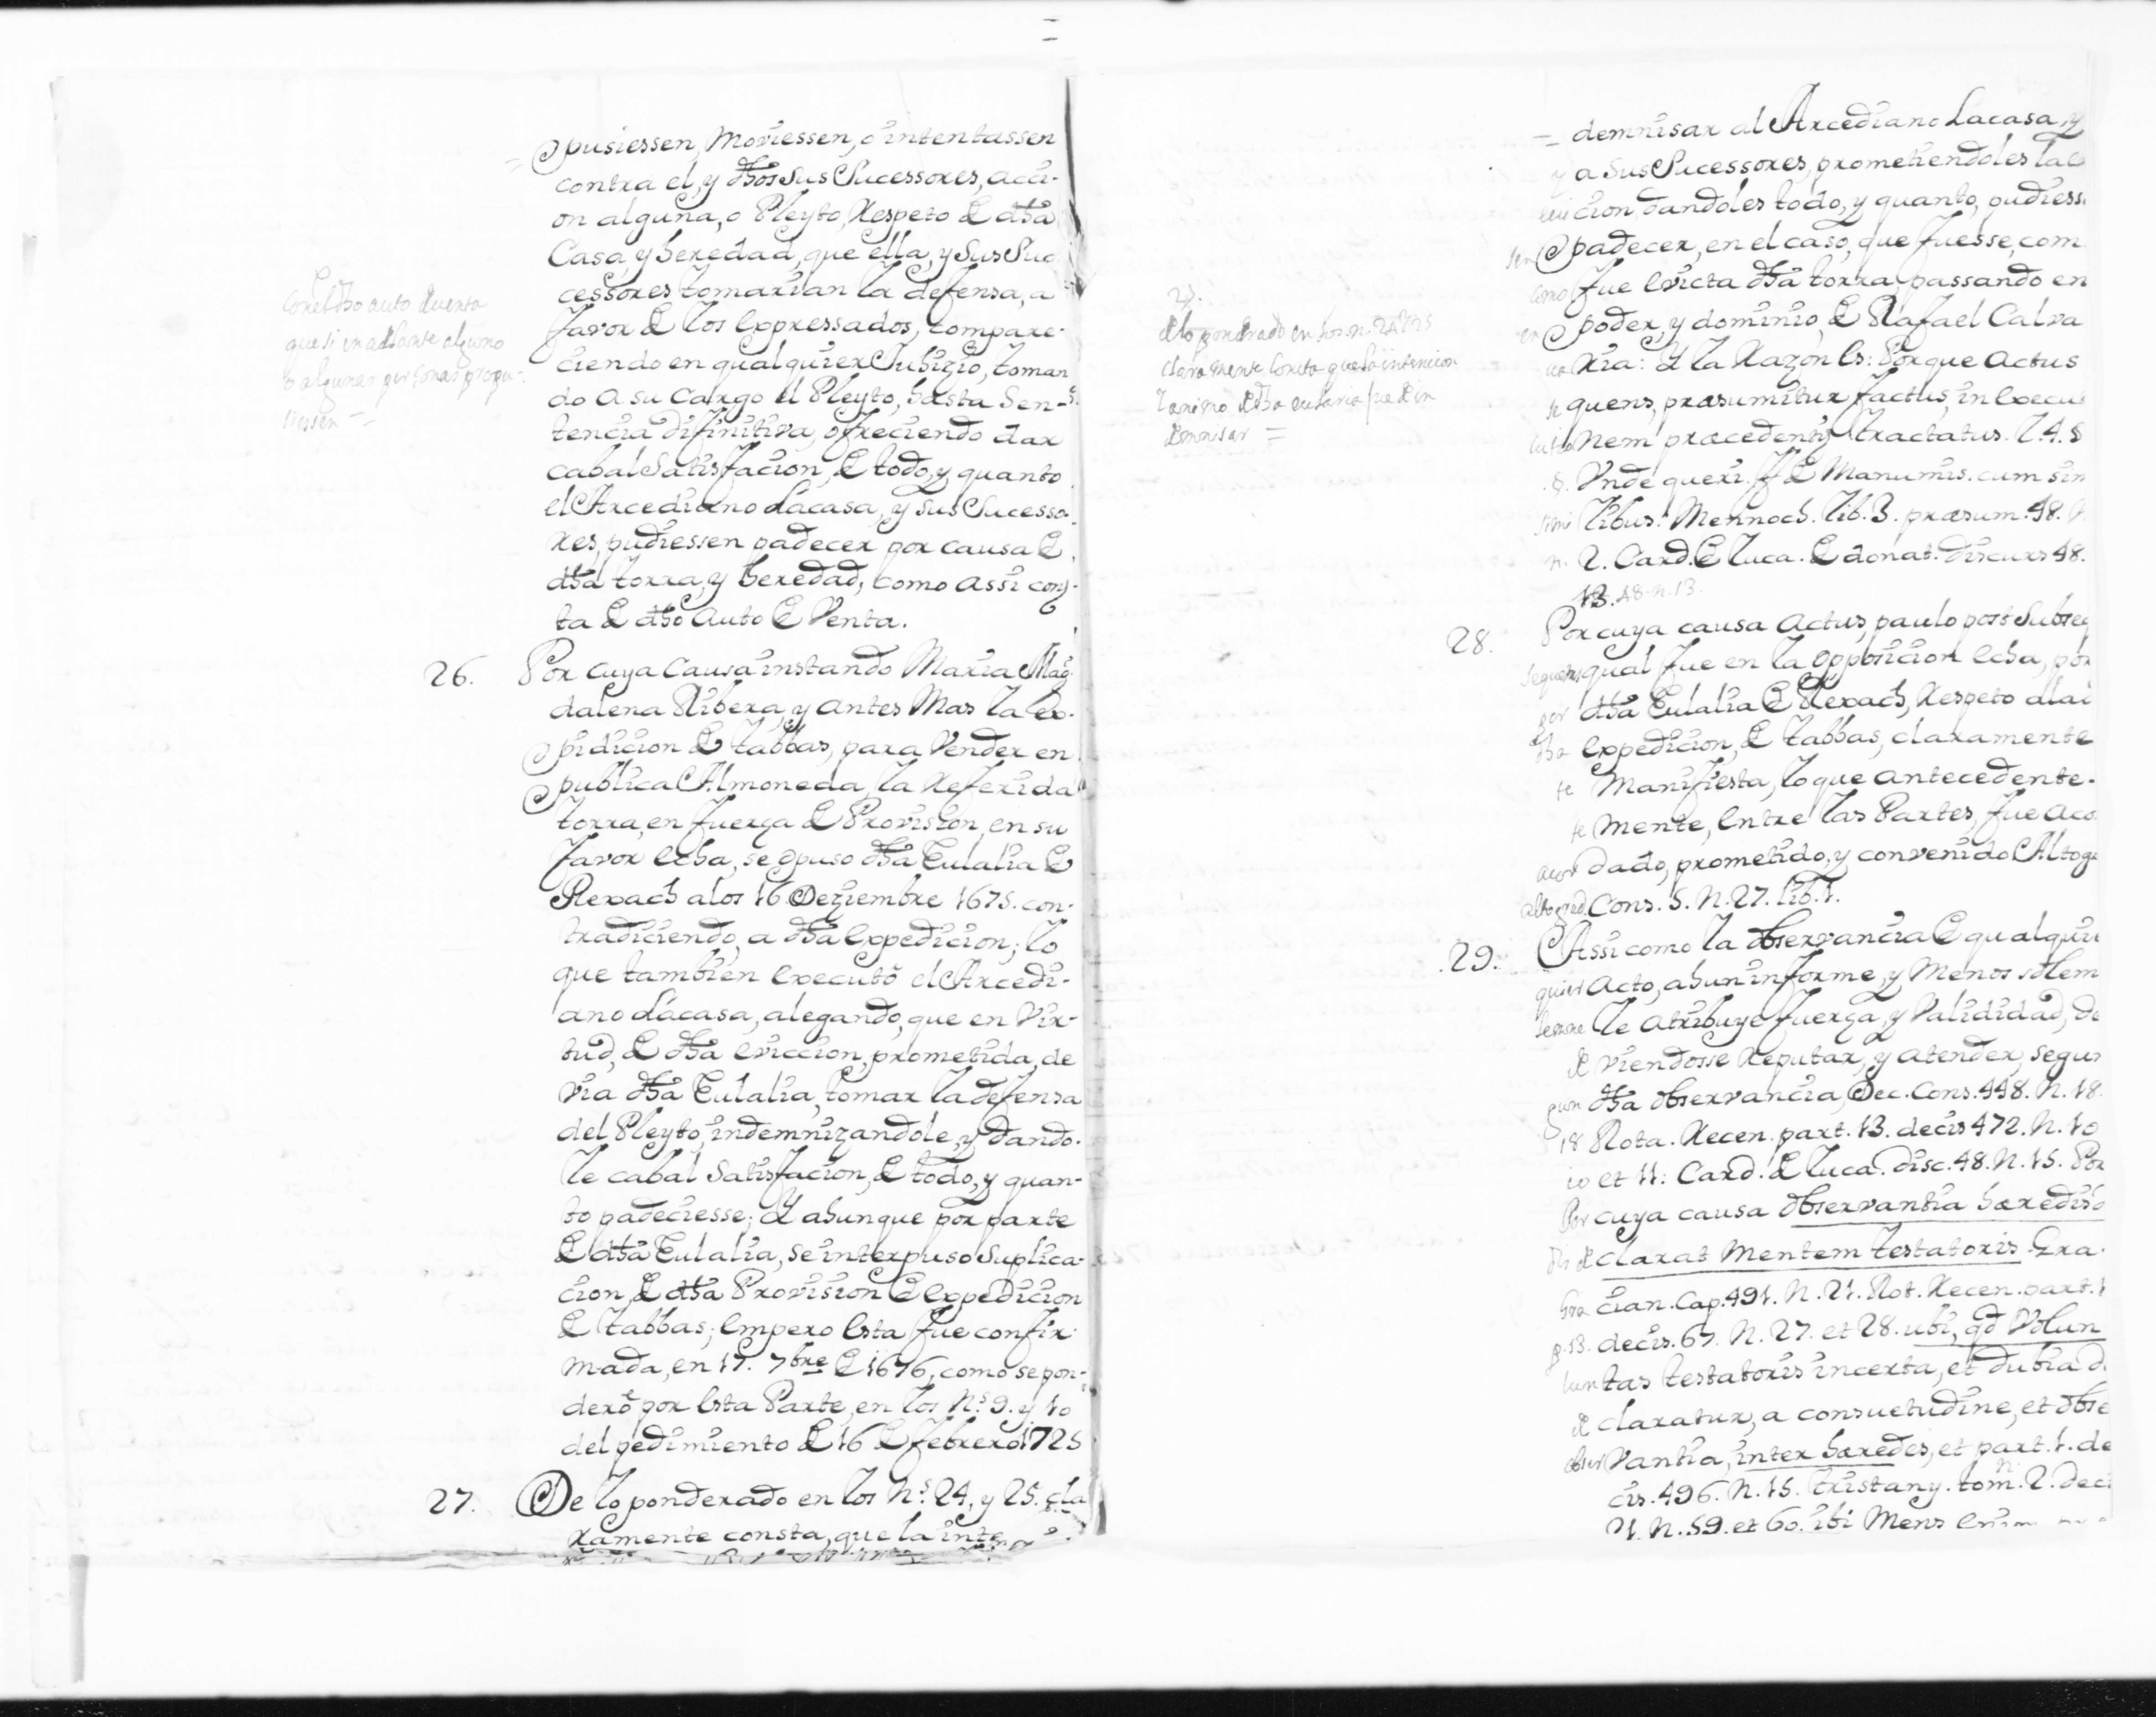 Con el dho auto de venta
que si en adelante alguno
o algunas personas propu-
siessen =
= opusiessen, Moviessen, o intentassen
contra el, y dhos Sus Sucessores, acci-
on alguna, o Pleyto, Respeto de dha
Casa, y heredad, que ella, y Sus Suc
cessores tomarian la defensa, a
favor de los expressados, compare-
ciendo en qualquier Juhizio, toman
do a su cargo el Pleyto, hasta Sen-
tencia difinitiva, ofreciendo dar
cabal Satisfacion, de todo, y quanto
el Arcediano Lacasa, y sus Sucesso-
res, pudiessen padecer por causa de
dha torra, y heredad, como assi cons-
ta de dho Auto de Venta.
26. Por cuya Causa instando Maria Mag-
dalena Ribera, y antes Mas la ex-
pidicion de tabbas, para Vender en
publica Almoneda, la Referida
torra, en fuerça de Provision, en su
favor echa, se opuso dha Eulalia de
Rexach a los 16. Deziembre 1675. con-
tradiciendo, a dha expedicion; lo
que tambien executó el Arcedi-
ano Lacasa, alegando, que en Vir-
tud, de dha eviccion, prometida, de
via dha Eulalia, tomar la defensa
del Pleyto, indemnizandole, y dando-
le cabal Satisfacion, de todo, y quan-
to padeciesse; Y ahunque por parte
de dha Eulalia, se interpuso Suplica-
cion, de dha Provision de expedicion
de tabbas; empero esta fue confir-
mada, en 17. 7bre de 1676, como se pon-
deró por esta Parte, en los N.s 9. y 10
del pedimiento de 16 de Febrero 1725
27. De lo ponderado en los N.s 24, y 25. cla
ramente consta, que la inte
27.
de lo ponderado en los n. 24 y 25
claramente consta que la intencion
y animo de dha eulalia fue de in
demnisar =
= demnisar al Arcediano Lacasa, y
y a Sus Sucessores, prometiendoles la e
vicion dandoles todo, y quanto, pudiess
sen padecer, en el caso, que fuesse, com
como fue evicta dha torra, passando en
en poder, y dominio, de Rafael Calva
ria: Y la Razon es: Porque actus
se quens, præsumitur factus, in execu
cutio nem præcedentis tractatus. l. 4. §
§. Unde queri. ff de Manumis. cum sim
simi libus. Mennoch. lib. 3. præsum. 48. n
n. 2. Card. de Luca. de donat. discurs 48.
13. 48. n. 13.
28. Por cuya causa actus, paulo post Subseq
sequens qual fue en la opposicion echa, por
por dha Eulalia de Rexach, Respeto a la
dha expedicion, de tabbas, claramente
te Manifiesta, lo que antecedente-
te mente, entre las Partes, fue aco
acor dado, prometido, y convenido Altogr
altograd. Cons. 5. N. 27. lib. 1.
29. Assi como la observancia de qualqui
quier acto, ahun informe, y Menos solem
lemne le atribuye fuerça, y Valididad, de
de viendosse Reputar, y atender, segun
gun dha observancia, Dec. Cons. 448. N. 18.
18 Rota. Recen. part. 13. decis 472. N. 10
10 et 11: Card. de Luca. disc. 48. N. 15. Por
Por cuya causa observantia hæredib
de clarat Mentem testatoris Gra-
Gra cian. Cap. 491. N. 21. Rot. Recen. part. 1
p. 13. decis. 67. N. 27. et 28. ubi, qd Volun
lun tas testatoris incerta, et dubia d
de claratur, a consuetudine, et obse
obser vantia, inter hæredes, et part. 1. de
cis. 496. N. 15. tristany. tom. 2. deci
1. N. 59. et 60. ibi Mens enim